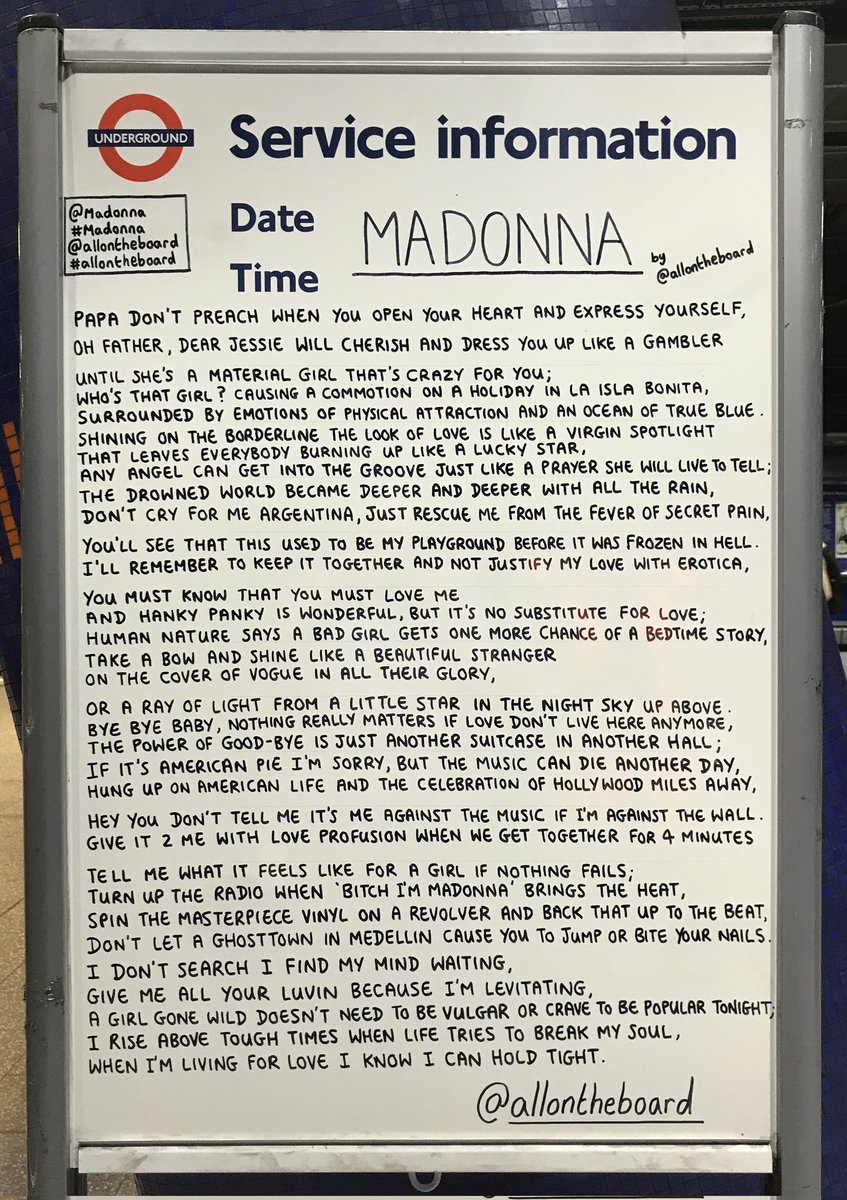 UNDERGROUND
Service information
@Madonna
#Madonna
@allontheboard
#allontheboard
Date
Time
MADONNA
by
@allontheboard
PAPA DON'T PREACH WHEN YOU OPEN YOUR HEART AND EXPRESS YOURSELF,
OH FATHER, DEAR JESSIE WILL CHERISH AND DRESS YOU UP LIKE A GAMBLER
UNTIL SHE'S A MATERIAL GIRL THAT'S CRAZY FOR YOU;
WHO'S THAT GIRL? CAUSING A COMMOTION ON A HOLIDAY IN LA ISLA BONITA,
SURROUNDED BY EMOTIONS OF PHYSICAL ATTRACTION AND AN OCEAN OF TRUE BLUE.
SHINING ON THE BORDERLINE THE LOOK OF LOVE IS LIKE A VIRGIN SPOTLIGHT
THAT LEAVES EVERYBODY BURNING UP LIKE A LUCKY STAR,
ANY ANGEL CAN GET INTO THE GROOVE JUST LIKE A PRAYER SHE WILL LIVE TO TELL;
THE DROWNED WORLD BECAME DEEPER AND DEEPER WITH ALL THE RAIN,
DON'T CRY FOR ME ARGENTINA, JUST RESCUE ME FROM THE FEVER OF SECRET PAIN,
YOU'LL SEE THAT THIS USED TO BE MY PLAYGROUND BEFORE IT WAS FROZEN IN HELL.
I'LL REMEMBER TO KEEP IT TOGETHER AND NOT JUSTIFY MY LOVE WITH EROTICA,
YOU MUST KNOW THAT YOU MUST LOVE ME
AND HANKY PANKY IS WONDERFUL, BUT IT'S NO SUBSTITUTE FOR LOVE;
HUMAN NATURE SAYS A BAD GIRL GETS ONE MORE CHANCE OF A BEDTIME STORY,
TAKE A BOW AND SHINE LIKE A BEAUTIFUL STRANGER
ON THE COVER OF VOGUE IN ALL THEIR GLORY,
OR A RAY OF LIGHT FROM A LITTLE STAR IN THE NIGHT SKY UP ABOVE.
BYE BYE BABY, NOTHING REALLY MATTERS IF LOVE DON'T LIVE HERE ANYMORE,
THE POWER OF GOOD-BYE IS JUST ANOTHER SUITCASE IN ANOTHER HALL;
IF IT'S AMERICAN PIE I'M SORRY, BUT THE MUSIC CAN DIE ANOTHER DAY,
HUNG UP ON AMERICAN LIFE AND THE CELEBRATION OF HOLLYWOOD MILES AWAY,
HEY YOU DON'T TELL ME IT'S ME AGAINST THE MUSIC IF I'M AGAINST THE WALL.
GIVE IT 2 ME WITH LOVE PROFUSION WHEN WE GET TOGETHER FOR 4 MINUTES
TELL ME WHAT IT FEELS LIKE FOR A GIRL IF NOTHING FAILS;
TURN UP THE RADIO WHEN 'BITCH I'M MADONNA' BRINGS THE HEAT,
SPIN THE MASTERPIECE VINYL ON A REVOLVER AND BACK THAT UP TO THE BEAT,
DON'T LET A GHOSTTOWN IN MEDELLIN CAUSE YOU TO JUMP OR BITE YOUR NAILS.
I DON'T SEARCH I FIND MY MIND WAITING,
GIVE ME ALL YOUR LUVIN BECAUSE I'M LEVITATING,
A GIRL GONE WILD DOESN'T NEED TO BE VULGAR OR CRAVE TO BE POPULAR TONIGHT;
I RISE ABOVE TOUGH TIMES WHEN LIFE TRIES TO BREAK MY SOUL,
WHEN I'M LIVING FOR LOVE I KNOW I CAN HOLD TIGHT.
@allontheboard